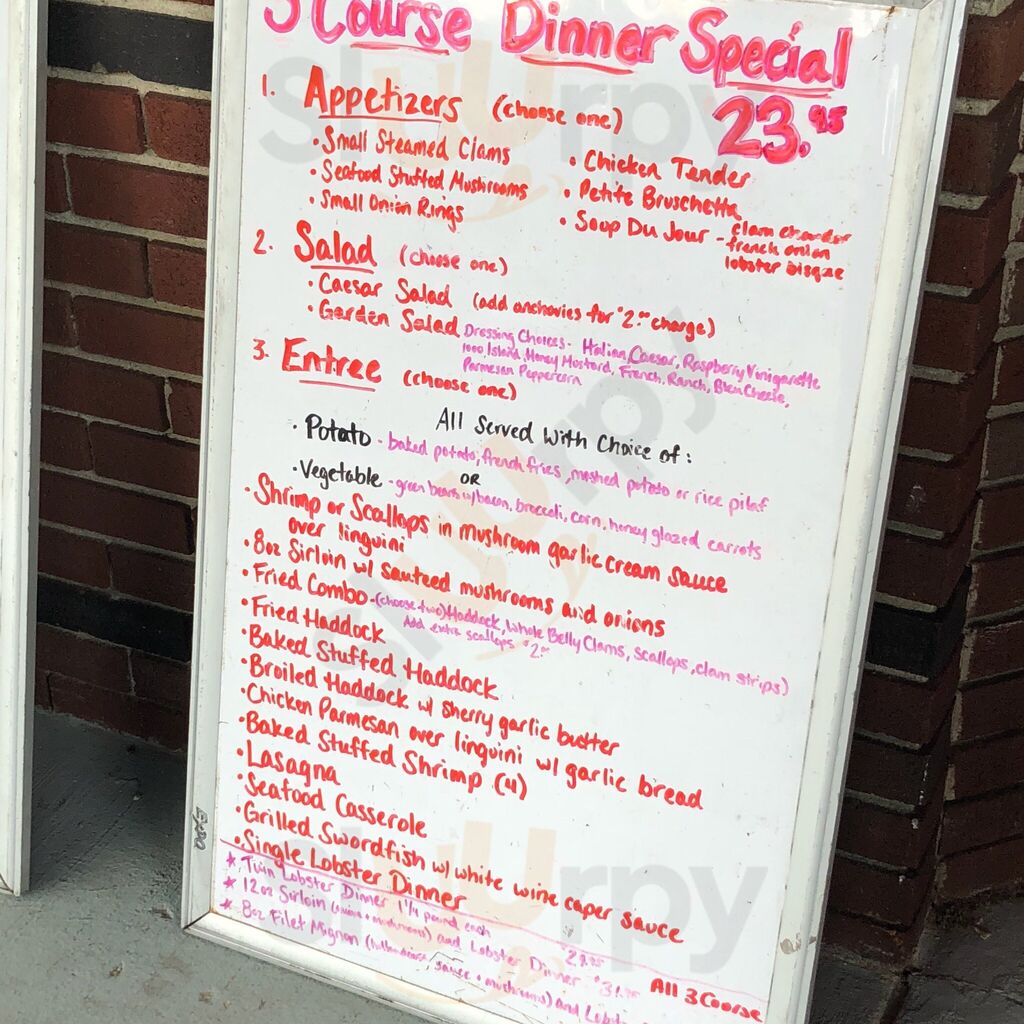 3 Course Dinner Special
23.95
1. Appetizers (choose one)
• Small Steamed Clams
• Seafood Stuffed Mushrooms
• Small Onion Rings
• Chicken Tender
• Petite Bruschetta
• Soup Du Jour - clam chowder
- french onion
lobster bisque
2. Salad (choose one)
• Caesar Salad (add anchovies for $2.00 charge)
• Garden Salad Dressing Choices - Italian, Caesar, Raspberry Vinigarette
1000 Island, Honey Mustard, French, Ranch, Bleu Cheese,
Parmesan Peppercorn
3. Entree (choose one)
All Served With Choice of:
• Potato - baked potato, french fries, mashed potato or rice pilaf
OR
• Vegetable - green beans w/ bacon, broccoli, corn, honey glazed carrots
• Shrimp or Scallops in mushroom garlic cream sauce
over linguini
• 8oz Sirloin w/ sauteed mushrooms and onions
• Fried Combo - (choose two) Haddock, Whole Belly Clams, scallops, clam strips)
Add extra scallops $2.00
• Fried Haddock
• Baked Stuffed Haddock
• Broiled Haddock w/ sherry garlic butter
• Chicken Parmesan over linguini w/ garlic bread
• Baked Stuffed Shrimp (4)
• Lasagna
• Seafood Casserole
• Grilled Swordfish w/ white wine caper sauce
• Single Lobster Dinner
★ Twin Lobster Dinner 1 1/4 pound each
★ 12oz Sirloin (onions + mushrooms) and Lobster Dinner $31.95
★ 8oz Filet Mignon (hollandaise sauce + mushrooms) and
All 3 Course
Slurpy
Slurpy
Slurpy